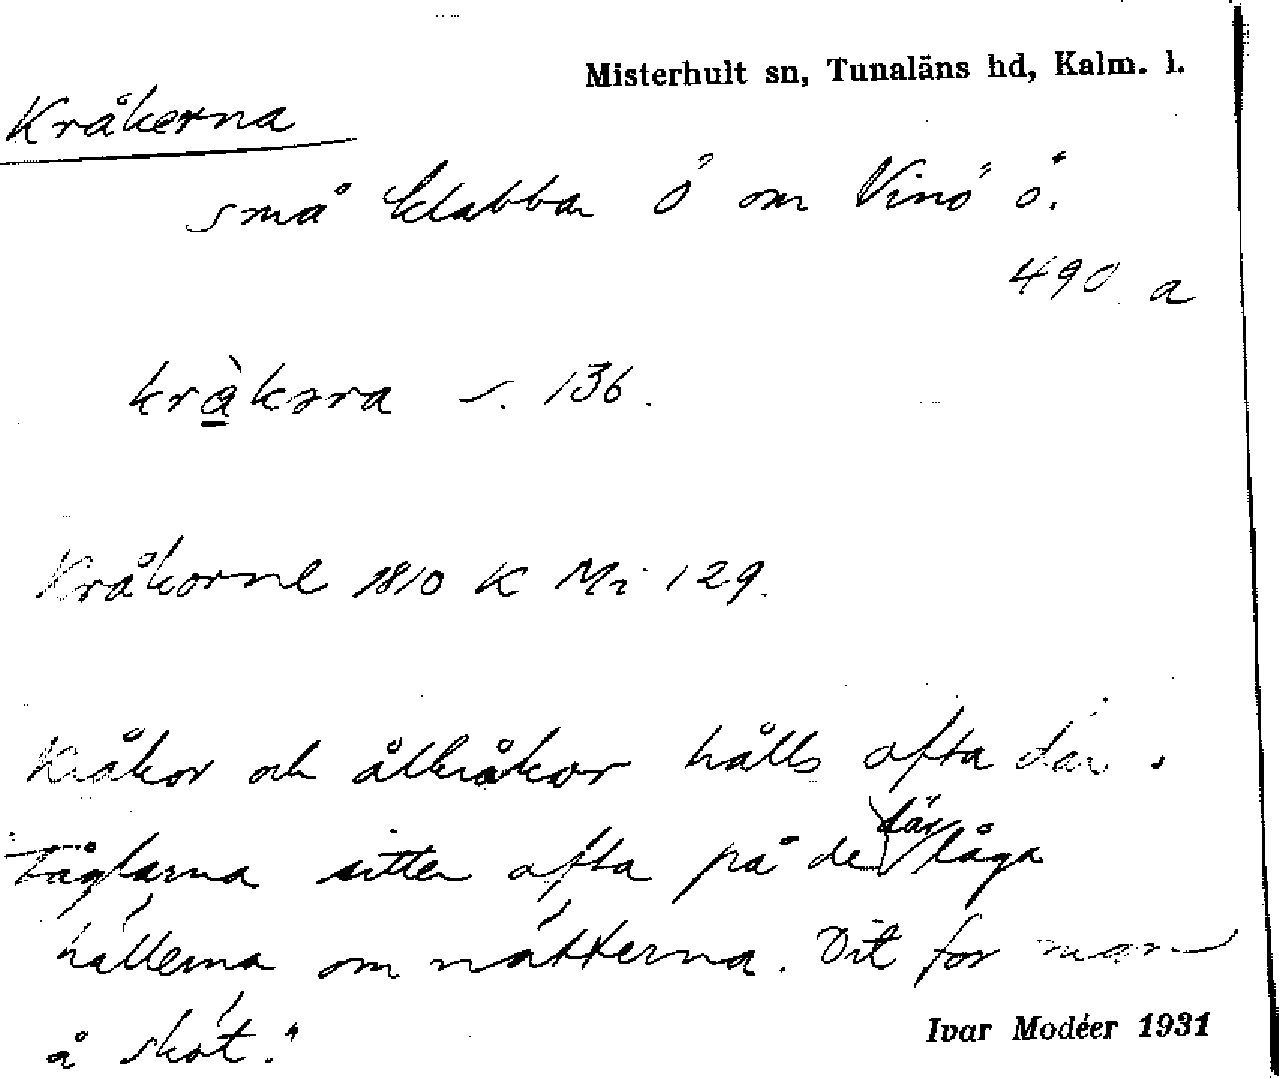 Misterhult sn, Tunaläns hd, Kalm. l.
Kråkerna
små klabbar Ö om Vinö ö.
490 a
kràkəra s. 136.
Kråkorne 1810 K Mi 129.
Kråkor och ålkråkor hålls ofta där.
Fåglarna sitter ofta på de där låga
hällerna om nätterna. Dit for man
å sköt."
Ivar Modéer 1931